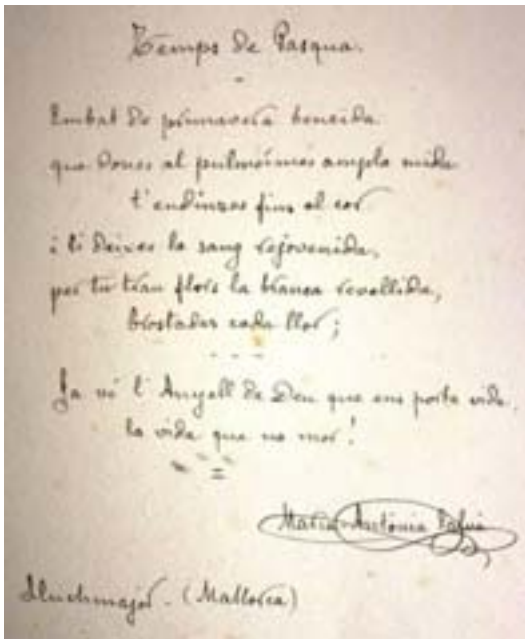 Temps de Pasqua.
Embat de primavera beneïda
que dones al pulmó mes ampla mida
t'endinses fins al cor
i li deixes la sang rejovenida,
per tu trau flors la branca revellida,
brostades cada llor;
Ja vé l'Anyell de Deu que ens porta vida,
la vida que no mor!
Maria Antònia Salvà
Lluchmajor. (Mallorca)